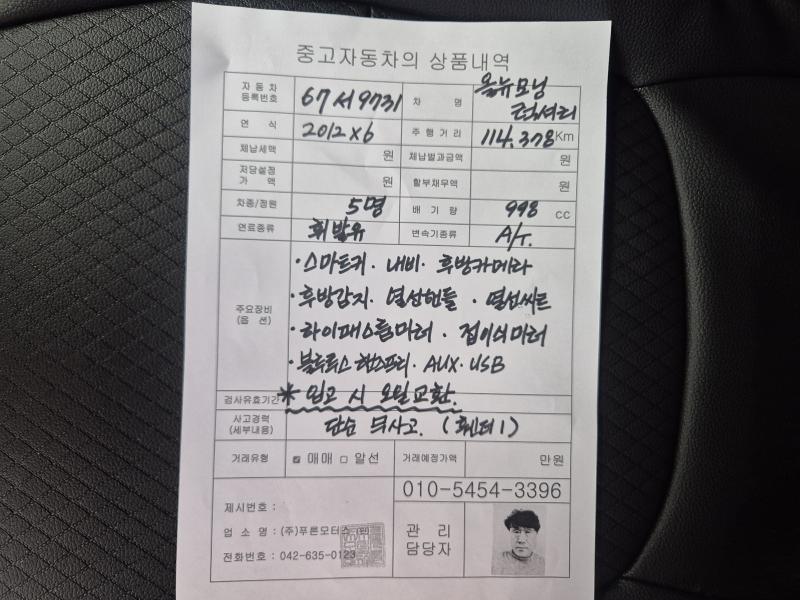 중고자동차의 상품내역
자동차 등록번호 67서9731 차 명 올뉴모닝 럭셔리
연 식 2012x6 주행거리 114.378Km
체납세액 원 체납벌과금액 원
저당설정 가 액 원 할부채무액 원
차종/정원 5명 배 기 량 998 cc
연료종류 휘발유 변속기종류 A/T.
주요장비 (옵 션)
·스마트키. 내비. 후방카메라
·후방감지. 열선핸들. 열선씨트
·하이패스룸미러. 접이식미러
·블루투스 핸즈프리. AUX. USB
검사유효기간 * 입고 시 오일교환.
사고경력 (세부내용) 단순 무사고. (휀더1)
거래유형 ☑ 매매 □ 알선 거래예정가액 만원
010-5454-3396
제시번호 :
업 소 명 : (주)푸른모터스 (인)
전화번호 : 042-635-0123
관 리 담당자